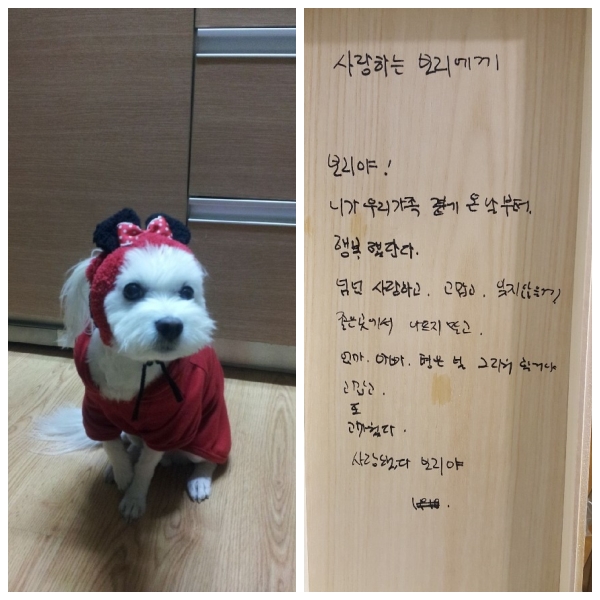 사랑하는 보리에게
보리야!
니가 우리가족 곁에 온 날부터.
행복했단다.
넘넘 사랑하고. 고맙고. 잊지않을게
좋은곳에서 아프지 말고.
엄마. 아빠. 형은 널 그리워 할거다
고맙고.
또
고마웠다.
사랑했다 보리야